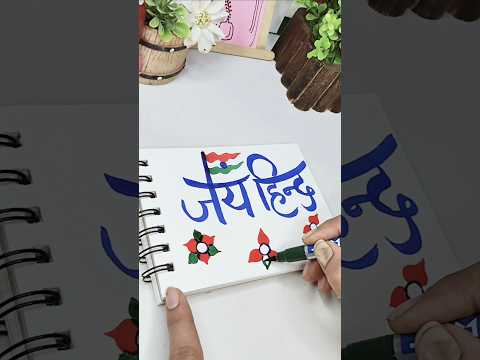 जय हिन्द